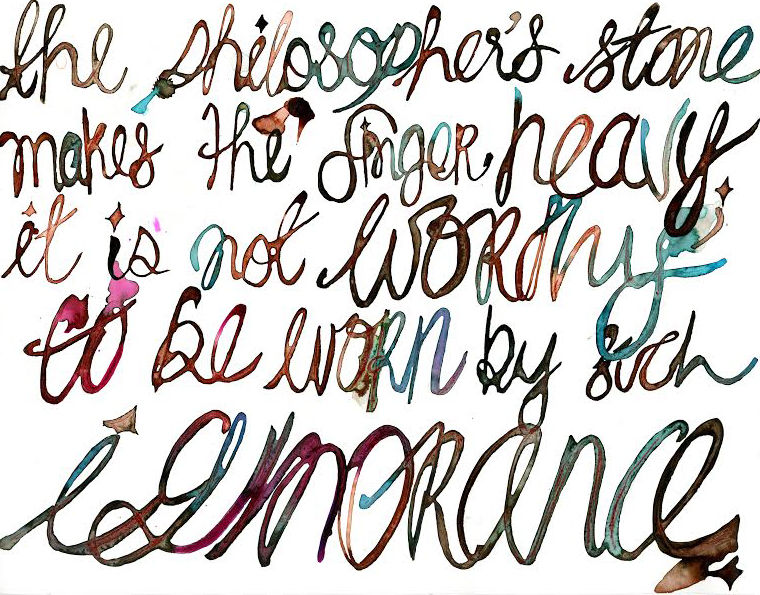 the philosopher's stone
makes the finger heavy
it is not WORthy
to be worn by such
ignorance